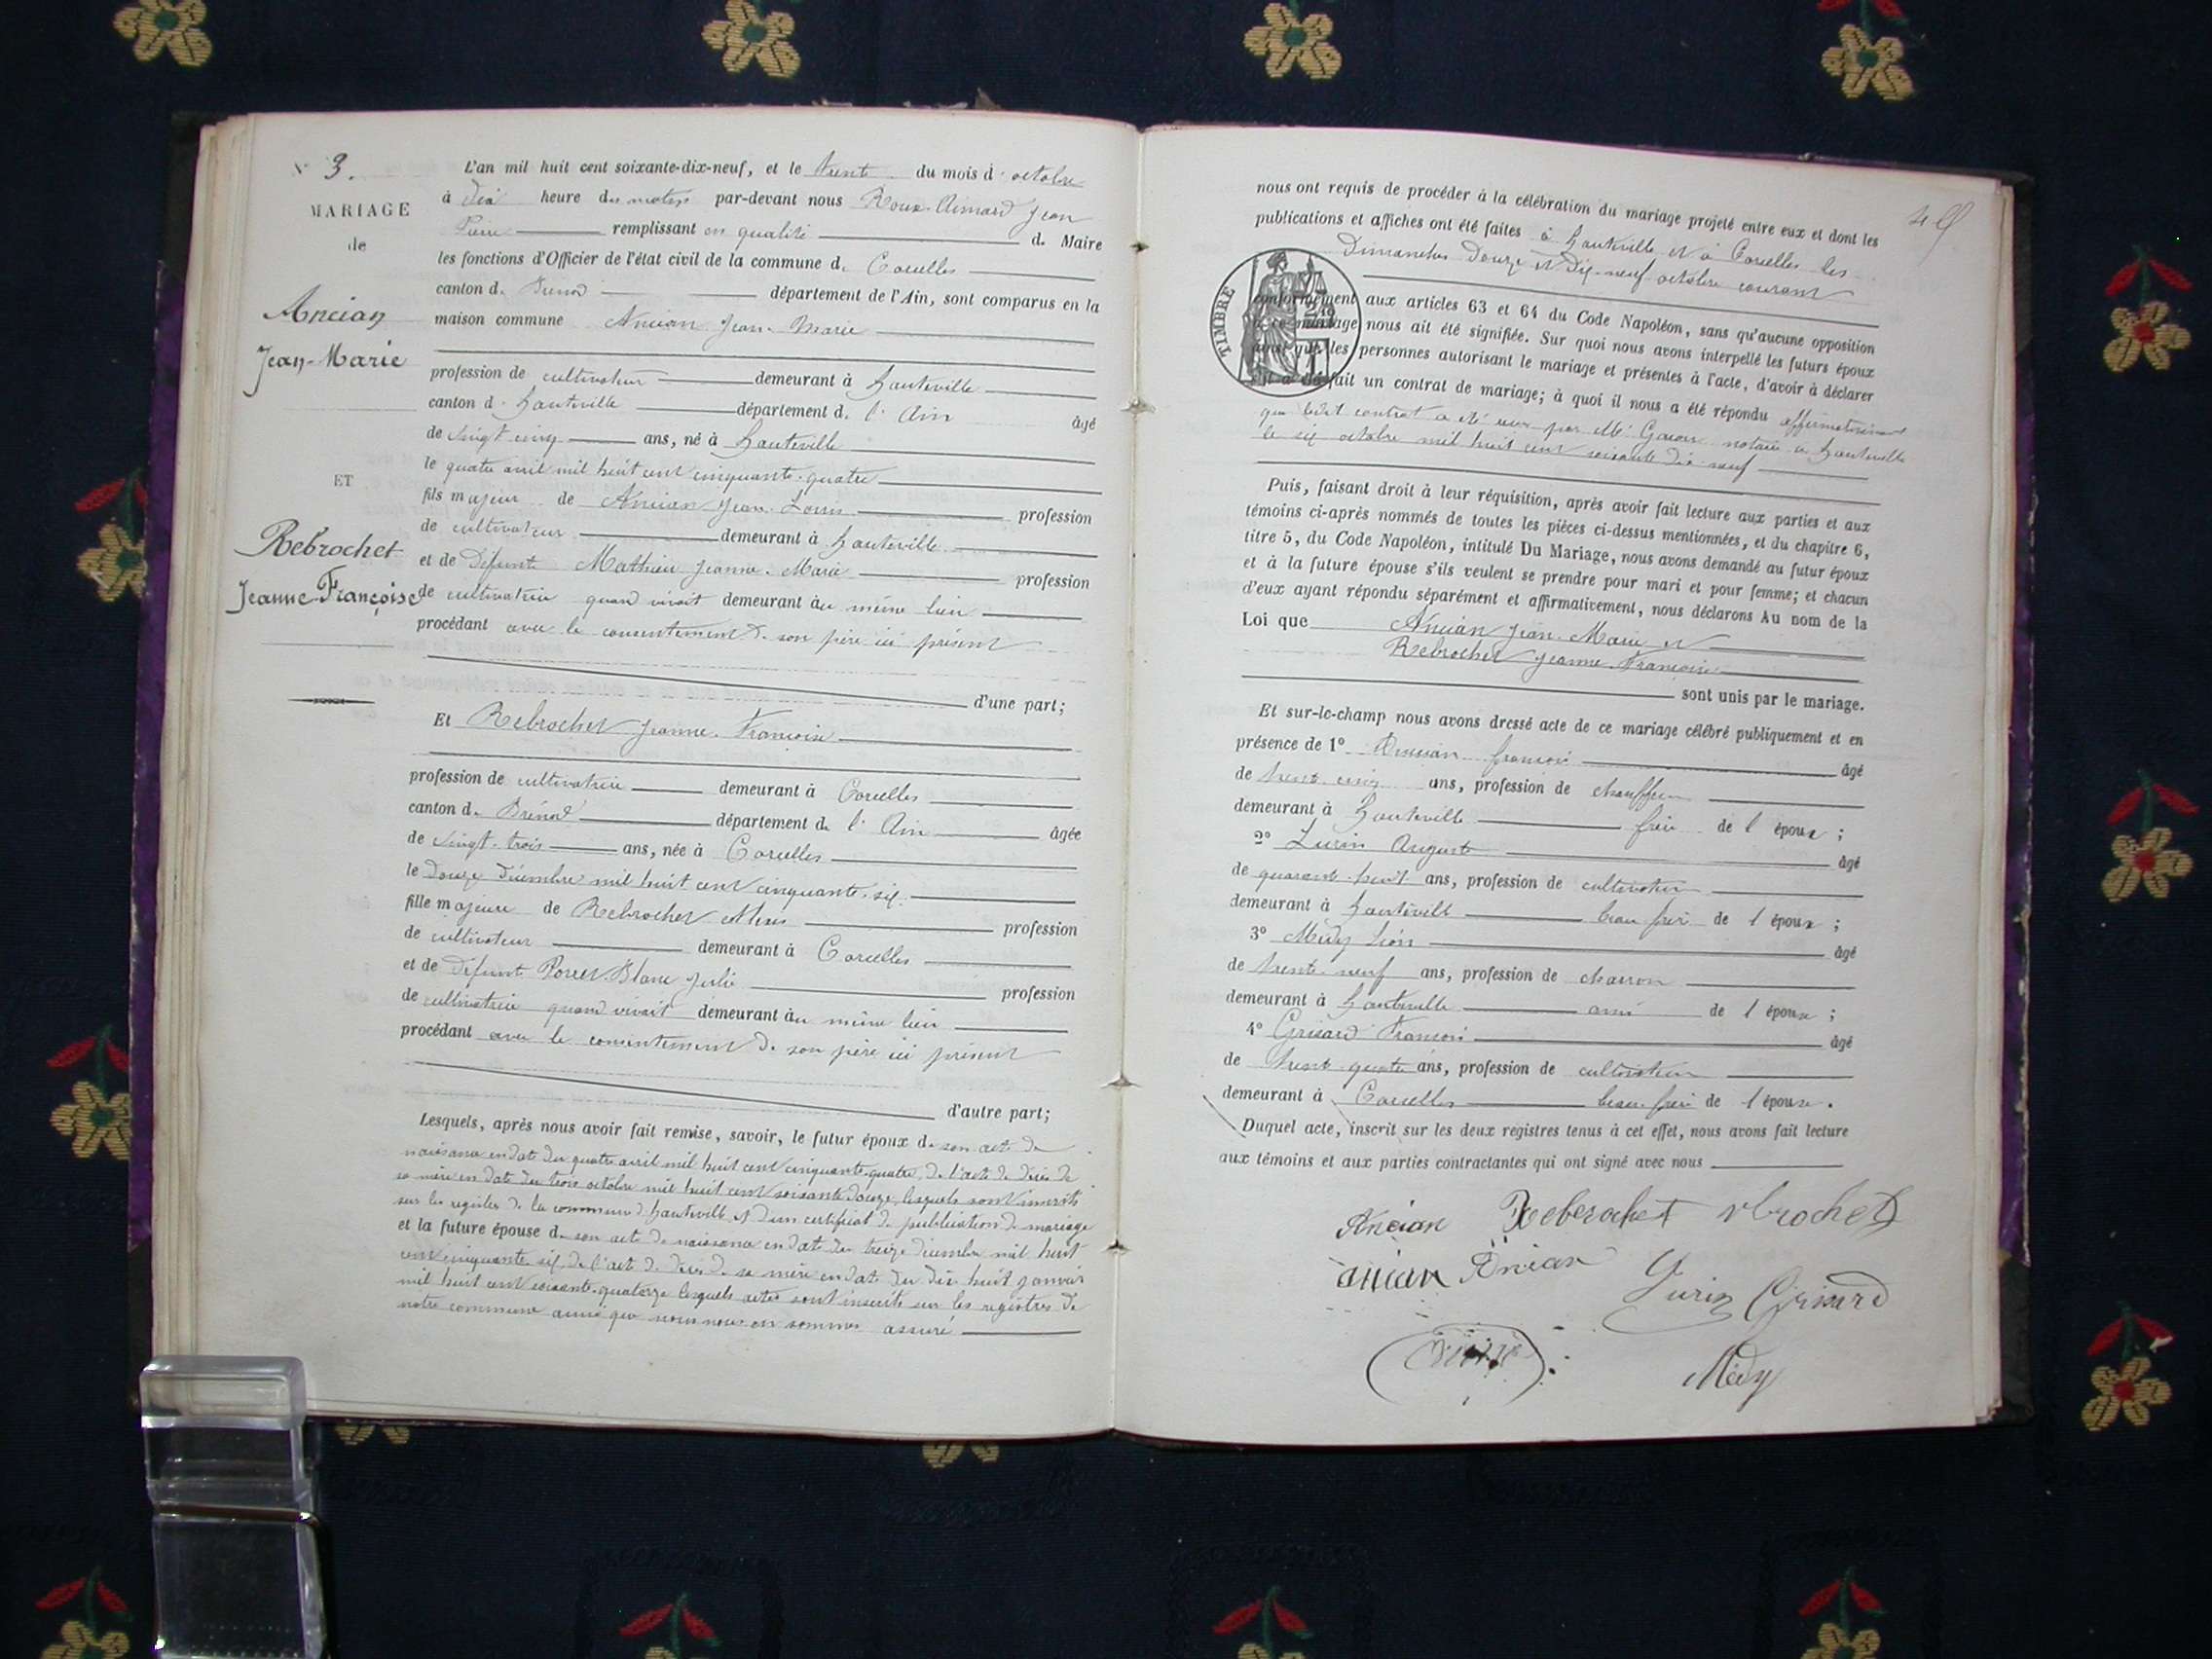 N° 3.
MARIAGE
de
Ancian
Jean-Marie
ET
Rebrochet
Jeanne-Françoise
L'an mil huit cent soixante-dix-neuf, et le trente du mois d'octobre
à dix heure du matin par-devant nous Roux-Aimard Jean
Pierre remplissant en qualité de Maire
les fonctions d'Officier de l'état civil de la commune de Corcelles
canton de Brénod département de l'Ain, sont comparus en la
maison commune Ancian Jean-Marie
profession de cultivateur demeurant à hauteville
canton d'hauteville département de l'Ain âgé
de vingt cinq ans, né à hauteville
le quatre avril mil huit cent cinquante-quatre
fils majeur de Ancian Jean-Louis profession
de cultivateur demeurant à hauteville
et de Défunte Mathieu Jeanne-Marie profession
de cultivatrice quand vivait demeurant au même lieu
procédant avec le consentement de son père ici présent
d'une part;
Et Rebrochet Jeanne-Françoise
profession de cultivatrice demeurant à Corcelles
canton de Brénod département de l'Ain âgée
de vingt-trois ans, née à Corcelles
le Douze Décembre mil huit cent cinquante-six
fille majeure de Rebrochet Alexis profession
de cultivateur demeurant à Corcelles
et de Défunte Blanc Julie profession
de cultivatrice quand vivait demeurant au même lieu
procédant avec le consentement de son père ici présent
d'autre part;
Lesquels, après nous avoir fait remise, savoir, le futur époux de son acte de
naissance en date du quatre avril mil huit cent cinquante-quatre, de l'acte de décès de
sa mère en date du trois octobre mil huit cent soixante douze, lesquels sont inscrits
sur les registres de la commune d'hauteville, et d'un certificat de publication de mariage
et la future épouse de son acte de naissance en date du treize Décembre mil huit
cent cinquante six, de l'acte de décès de sa mère en date du dix huit janvier
mil huit cent soixante-quatorze lesquels actes sont inscrits sur les registres de
notre commune ainsi que nous nous en sommes assuré
nous ont requis de procéder à la célébration du mariage projeté entre eux et dont les
publications et affiches ont été faites à hauteville et à Corcelles les
Dimanches Douze et Dix-neuf octobre courant
TIMBRE
conformément aux articles 63 et 64 du Code Napoléon, sans qu'aucune opposition
à ce mariage nous ait été signifiée. Sur quoi nous avons interpellé les futurs époux
ainsi que les personnes autorisant le mariage et présentes à l'acte, d'avoir à déclarer
s'il a été fait un contrat de mariage; à quoi il nous a été répondu affirmativement
que ledit contrat a été reçu par Me notaire à hauteville
le six octobre mil huit cent soixante dix-neuf
Puis, faisant droit à leur réquisition, après avoir fait lecture aux parties et aux
témoins ci-après nommés de toutes les pièces ci-dessus mentionnées, et du chapitre 6,
titre 5, du Code Napoléon, intitulé Du Mariage, nous avons demandé au futur époux
et à la future épouse s'ils veulent se prendre pour mari et pour femme; et chacun
d'eux ayant répondu séparément et affirmativement, nous déclarons Au nom de la
Loi que Ancian Jean-Marie et
Rebrochet Jeanne-Françoise
sont unis par le mariage.
Et sur-le-champ nous avons dressé acte de ce mariage célébré publiquement et en
présence de 1° Ancian françois âgé
de trente cinq ans, profession de chauffeur
demeurant à hauteville frère de l'époux ;
2° Lurin Auguste âgé
de quarante-huit ans, profession de cultivateur
demeurant à hauteville beau frère de l'époux ;
3° Médy Léon âgé
de trente-neuf ans, profession de charron
demeurant à hauteville ami de l'époux ;
4° Grisard François âgé
de trente quatre ans, profession de cultivateur
demeurant à Corcelles beau-frère de l'épouse.
Duquel acte, inscrit sur les deux registres tenus à cet effet, nous avons fait lecture
aux témoins et aux parties contractantes qui ont signé avec nous
Ancian Reberochet rbrochet
ancian Ancian Lurin Grisard
Médy